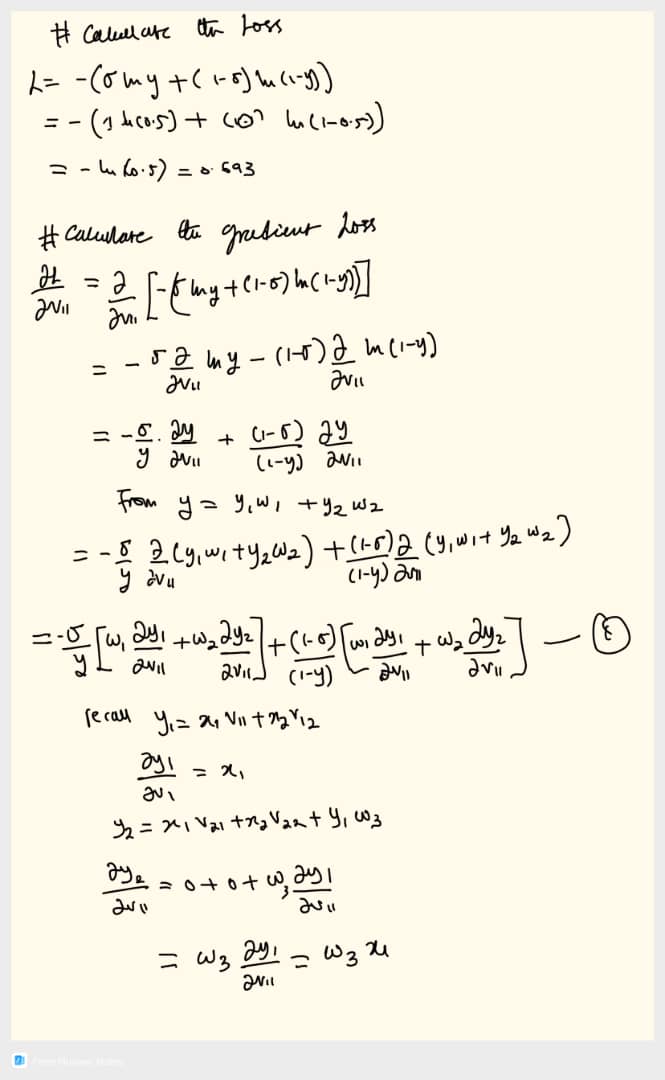 # Calculate the Loss
L = -(σ ln y + (1-σ) ln(1-y))
= -(1 ln(0.5) + (0) ln(1-0.5))
= -ln(0.5) = 0.693
# Calculate the gradient Loss
∂L/∂v11 = ∂/∂v11 [-(σ ln y + (1-σ) ln(1-y))]
= -σ ∂/∂v11 ln y - (1-σ) ∂/∂v11 ln(1-y)
= -σ/y . ∂y/∂v11 + (1-σ)/(1-y) ∂y/∂v11
From y = y1w1 + y2w2
= -σ/y ∂/∂v11 (y1w1 + y2w2) + (1-σ)/(1-y) ∂/∂v11 (y1w1 + y2w2)
= -σ/y [w1 ∂y1/∂v11 + w2 ∂y2/∂v11] + (1-σ)/(1-y) [w1 ∂y1/∂v11 + w2 ∂y2/∂v11] —
recall y1 = x1 v11 + x2 v12
∂y1/∂v1 = x1
y2 = x1 v21 + x2 v22 + y1 w3
∂y2/∂v11 = 0 + 0 + w3 ∂y1/∂v11
= w3 ∂y1/∂v11 = w3 x1